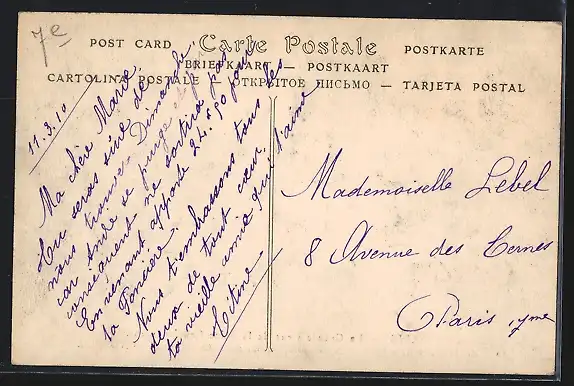 7e
POST CARD Carte Postale POSTKARTE
BRIEFKAART — POSTKAART
CARTOLINA POSTALE — ОТКРЫТОЕ ПИСЬМО — TARJETA POSTAL
11.3.10
Ma chère Marie
tu seras sûre de
nous trouver Dimanche,
car Ande se purge et par
conséquent ne sortira pas.
En venant apporte 24.50 pour
la Foncière.
Nous t'embrassons tous les
deux de tout cœur.
ta vieille amie qui t'aime
Titine
Mademoiselle Lebel
8 Avenue des Ternes
Paris, 17me